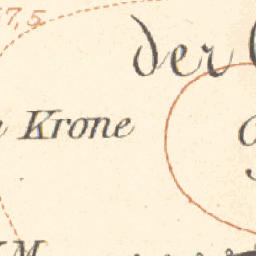 7,5
der
Krone
M